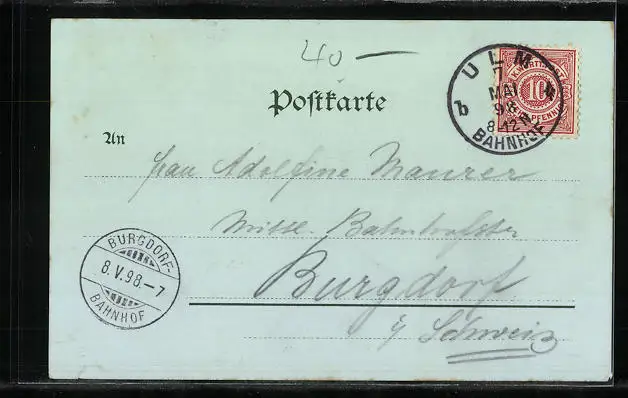 40 —
ULM
7
MAI
98
8-12 N
b b
BAHNHOF
10
PFENNIG
Postkarte
An
Frau Adolfine Maurer
Mittl. Bahnhofstr
Burgdorf
Schweiz
BURGDORF-
8.V.98.–7
BAHNHOF